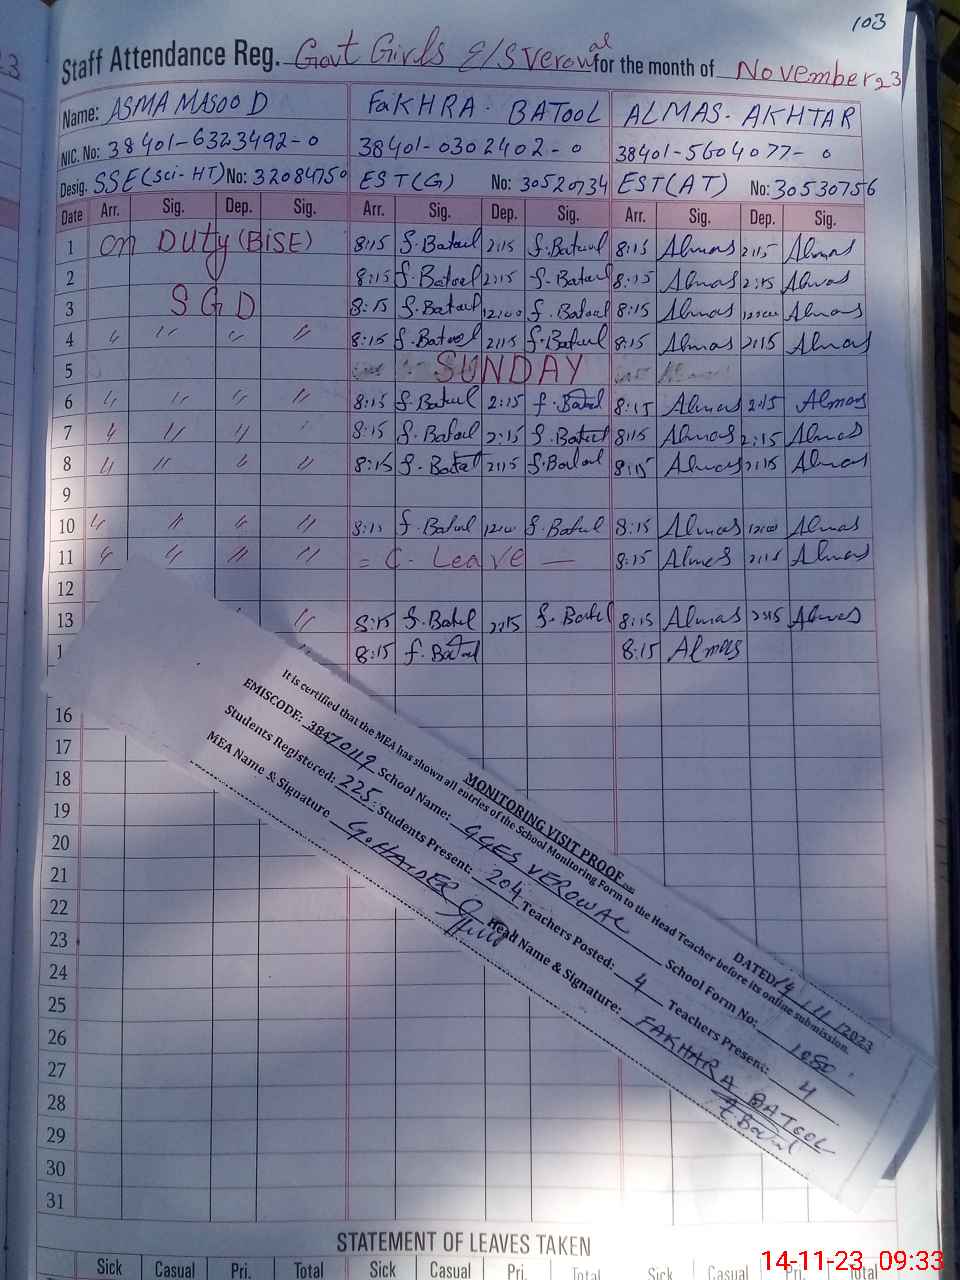 103
Staff Attendance Reg. Govt Girls E/S Verowal for the month of November 23
Name: ASMA MASOOD FaKHRA. BATOOL ALMAS. AKHTAR
NIC. No: 38401-6323492-0 38401-0302402-0 38401-5604077-0
Desig. SSE(Sci-HT) No: 32084750 EST(G) No: 30520734 EST(AT) No: 30530756
Date Arr. Sig. Dep. Sig. Arr. Sig. Dep. Sig. Arr. Sig. Dep. Sig.
1 on Duty (BISE) 8:15 f.Batool 2:15 f.Batool 8:15 Almas 2:15 Almas
2 8:15 f.Batool 2:15 f.Batool 8:15 Almas 2:15 Almas
3 SGD 8:15 f.Batool 12:00 f.Batool 8:15 Almas 12:00 Almas
4 " " " " 8:15 f.Batool 2:15 f.Batool 8:15 Almas 2:15 Almas
5 SUNDAY
6 " " " " 8:15 f.Batool 2:15 f.Batool 8:15 Almas 2:15 Almas
7 " " " " 8:15 f.Batool 2:15 f.Batool 8:15 Almas 2:15 Almas
8 " " " " 8:15 f.Batool 2:15 f.Batool 8:15 Almas 2:15 Almas
9
10 " " " " 8:15 f.Batool 12:00 f.Batool 8:15 Almas 12:00 Almas
11 " " " " = C. Leave — 8:15 Almas 2:15 Almas
12
13 " " 8:15 f.Batool 2:15 f.Batool 8:15 Almas 2:15 Almas
1 8:15 f.Batool 8:15 Almas
16
17
18
19
20
21
22
23
24
25
26
27
28
29
30
31
MONITORING VISIT PROOF
DATED 14/11/2023
It is certified that the MEA has shown all entries of the School Monitoring Form to the Head Teacher before its online submission.
EMISCODE: 38470119 School Name: GGES VEROWAL School Form No:
Students Registered: 225 Students Present: 204 Teachers Posted: 4 Teachers Present: 4
MEA Name & Signature G. HAIDER Head Name & Signature: FAKHARA BATOOL
f.Batool
STATEMENT OF LEAVES TAKEN
Sick Casual Pri. Total Sick Casual Pri. Total Sick Casual Pri. Total
14-11-23 09:33